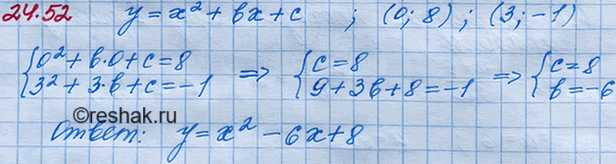 24.52 y = x² + bx + c ; (0; 8) ; (3; -1)
{0² + b·0 + c = 8 ⇒ {c = 8 ⇒ {c = 8
{3² + 3·b + c = -1 {9 + 3b + 8 = -1 {b = -6
©reshak.ru
Ответ: y = x² - 6x + 8